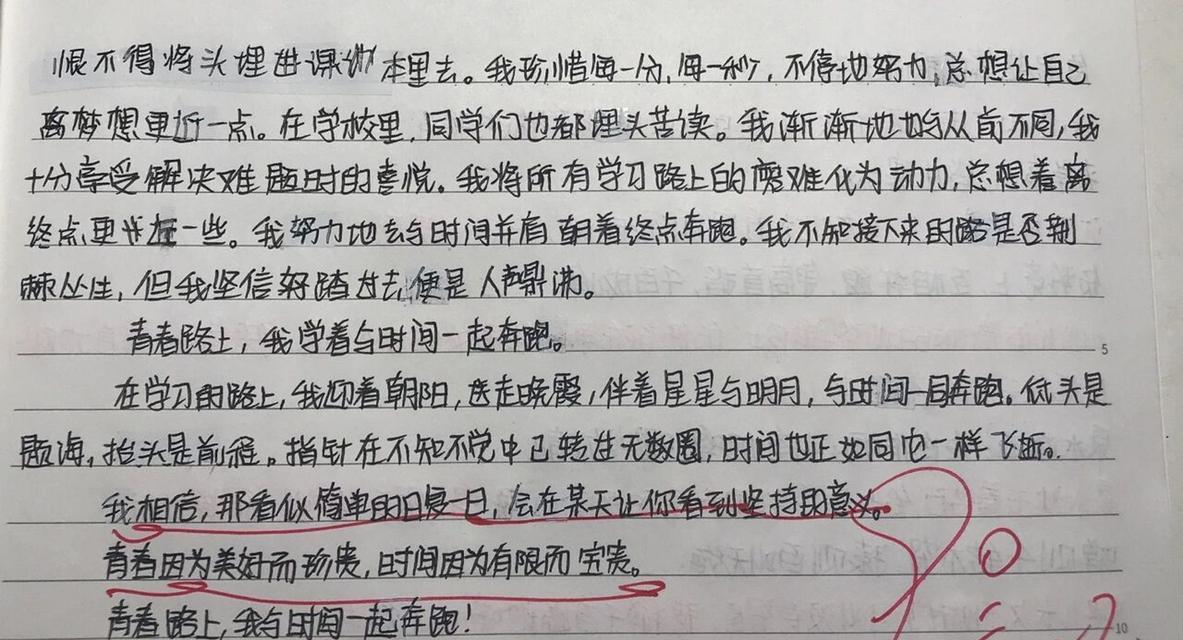 恨不得将头埋进课本里去。我珍惜每一分,每一秒,不停地努力,总想让自己
离梦想更近一点。在学校里,同学们也都埋头苦读。我渐渐地与从前不同,我
十分享受解决难题时的喜悦。我将所有学习路上的磨难化为动力,总想着离
终点更近一些。我努力地去与时间并肩朝着终点奔跑。我不知接下来的路是否荆
棘丛生,但我坚信踏过去,便是人声鼎沸。
青春路上,我学着与时间一起奔跑。
5
在学习的路上,我迎着朝阳,送走晚霞,伴着星星与明月,与时间一同奔跑。低头是
题海,抬头是前程。指针在不知不觉中已转过无数圈,时间也正如同它一样飞逝。
我相信,那看似简单的日复一日,会在某天让你看到坚持的意义。
青春因为美好而珍贵,时间因为有限而宝贵。
青春路上,我与时间一起奔跑!
10